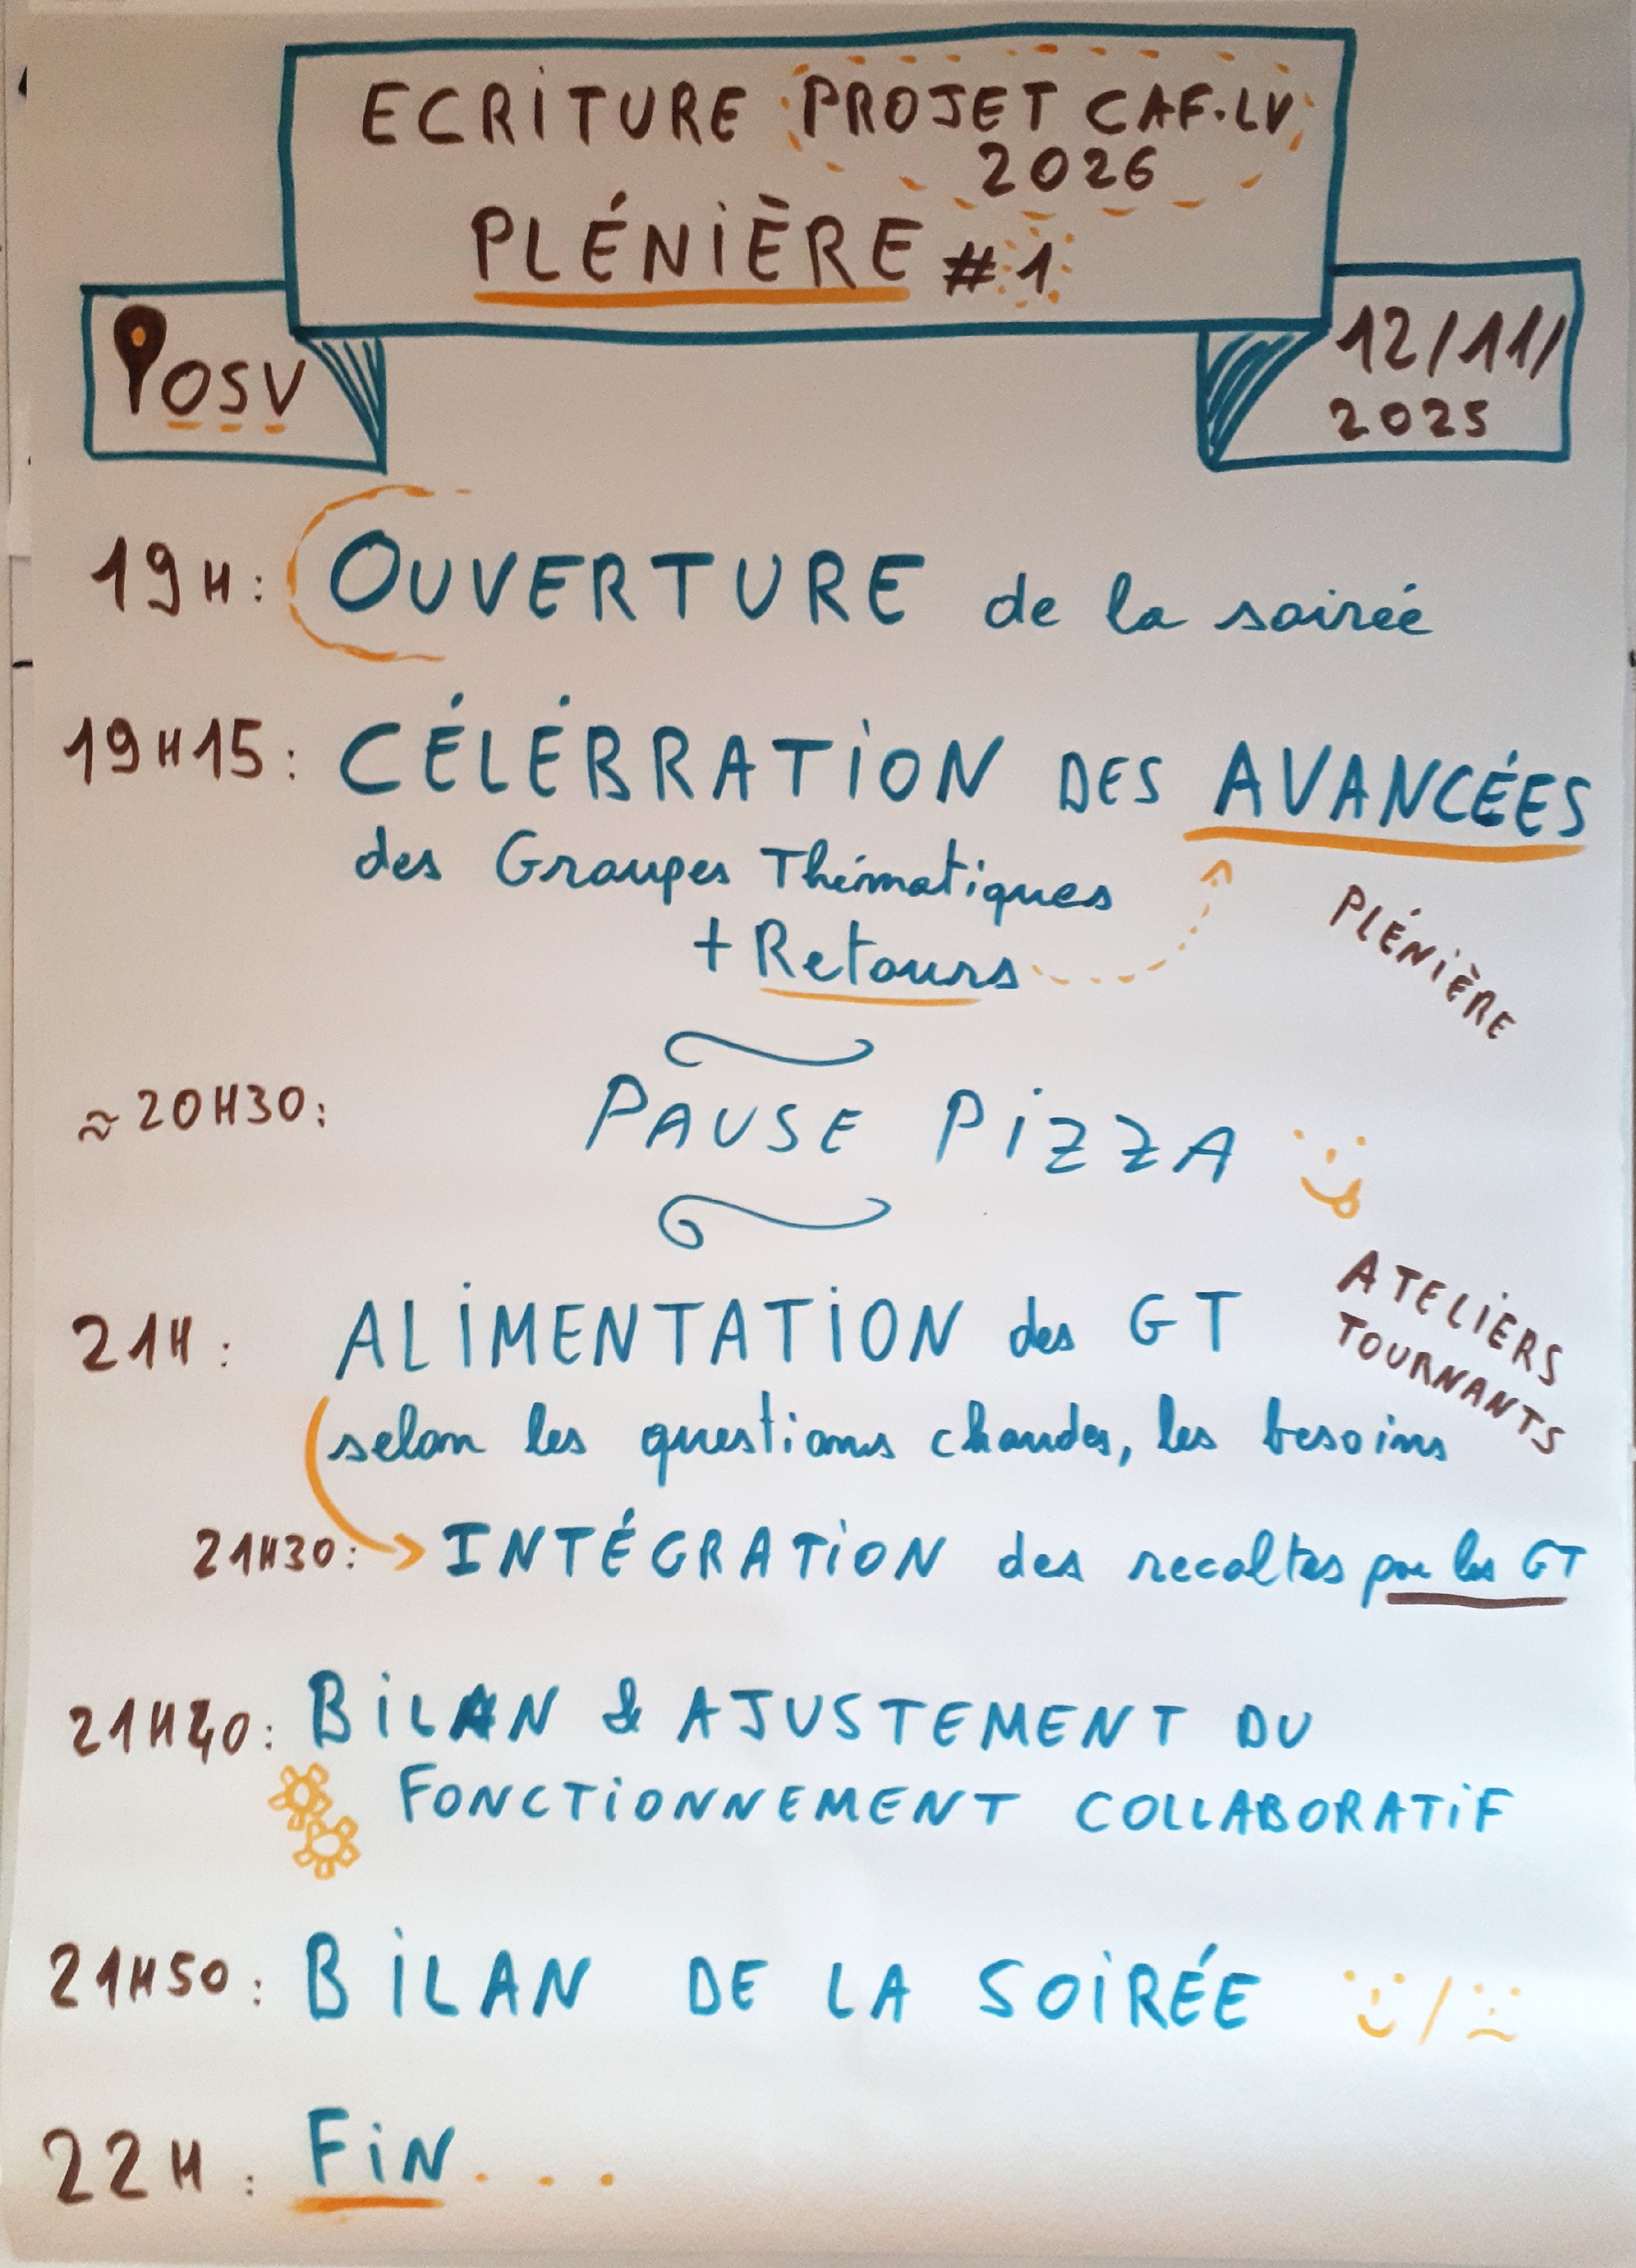 ECRITURE PROJET CAF.LV
2026
PLÉNIÈRE #1
OSV
12/11/
2025
19H: OUVERTURE de la soirée
19H15: CÉLÉBRATION DES AVANCÉES
des Groupes Thématiques
+ Retours
PLÉNIÈRE
≈20H30: PAUSE PIZZA
21H: ALIMENTATION des GT
ATELIERS
TOURNANTS
selon les questions chaudes, les besoins
21H30: INTÉGRATION des recoltes par les GT
21H40: BILAN & AJUSTEMENT DU
FONCTIONNEMENT COLLABORATIF
21H50: BILAN DE LA SOIRÉE
22H: FIN...